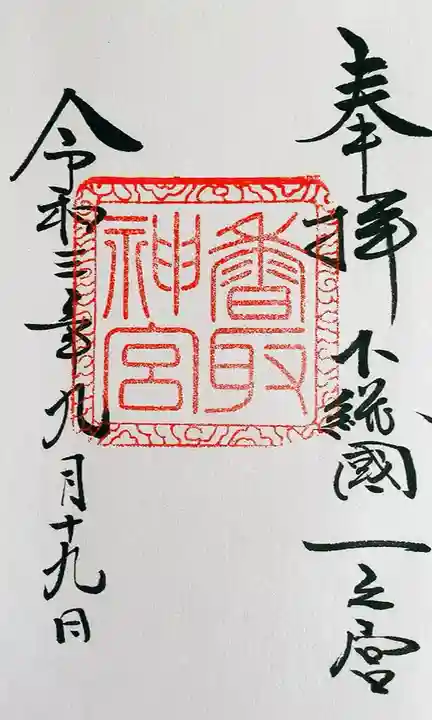 奉拝 下総國一之宮
香取
神宮
令和三年九月十九日